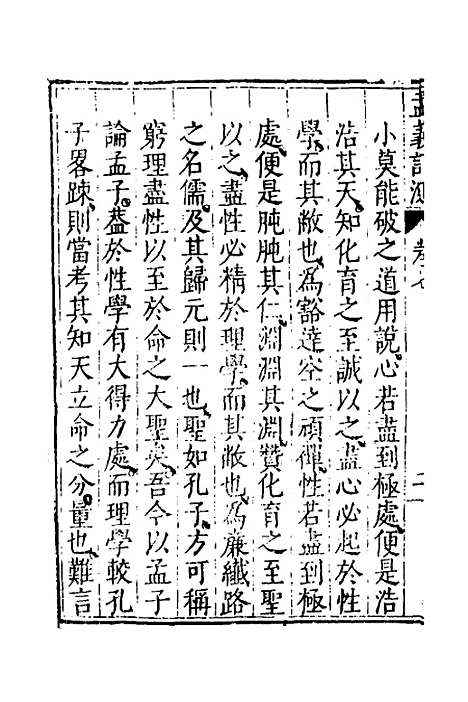 孟義訂測
卷七
二
小莫能破之道用說心若盡到極處便是浩
浩其天知化育之至誠以之盡心必起於性
學而其敝也為豁達空之頑禪性若盡到極
處便是肫肫其仁淵淵其淵贊化育之至聖
以之盡性必精於理學而其敝也為廉纖路
之名儒及其歸元則一也聖如孔子方可稱
窮理盡性以至於命之大聖矣吾今以孟子
論孟子葢於性學有大得力處而理學較孔
子畧踈則當考其知天立命之分量也難言